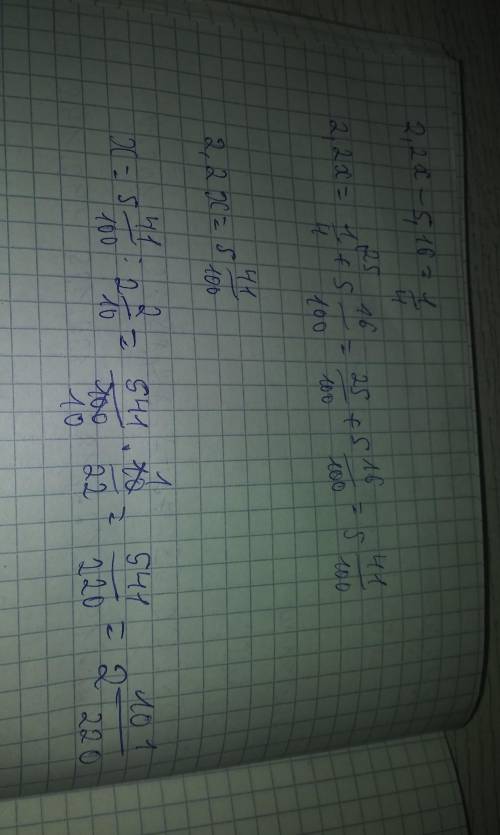 2,2x - 5,16 = 1/4
2,2x = 1/4 ²⁵ + 5 16/100 = 25/100 + 5 16/100 = 5 41/100
2,2x = 5 41/100
x = 5 41/100 : 2 2/10 = 541/100 · 10/22 = 541/220 = 2 101/220